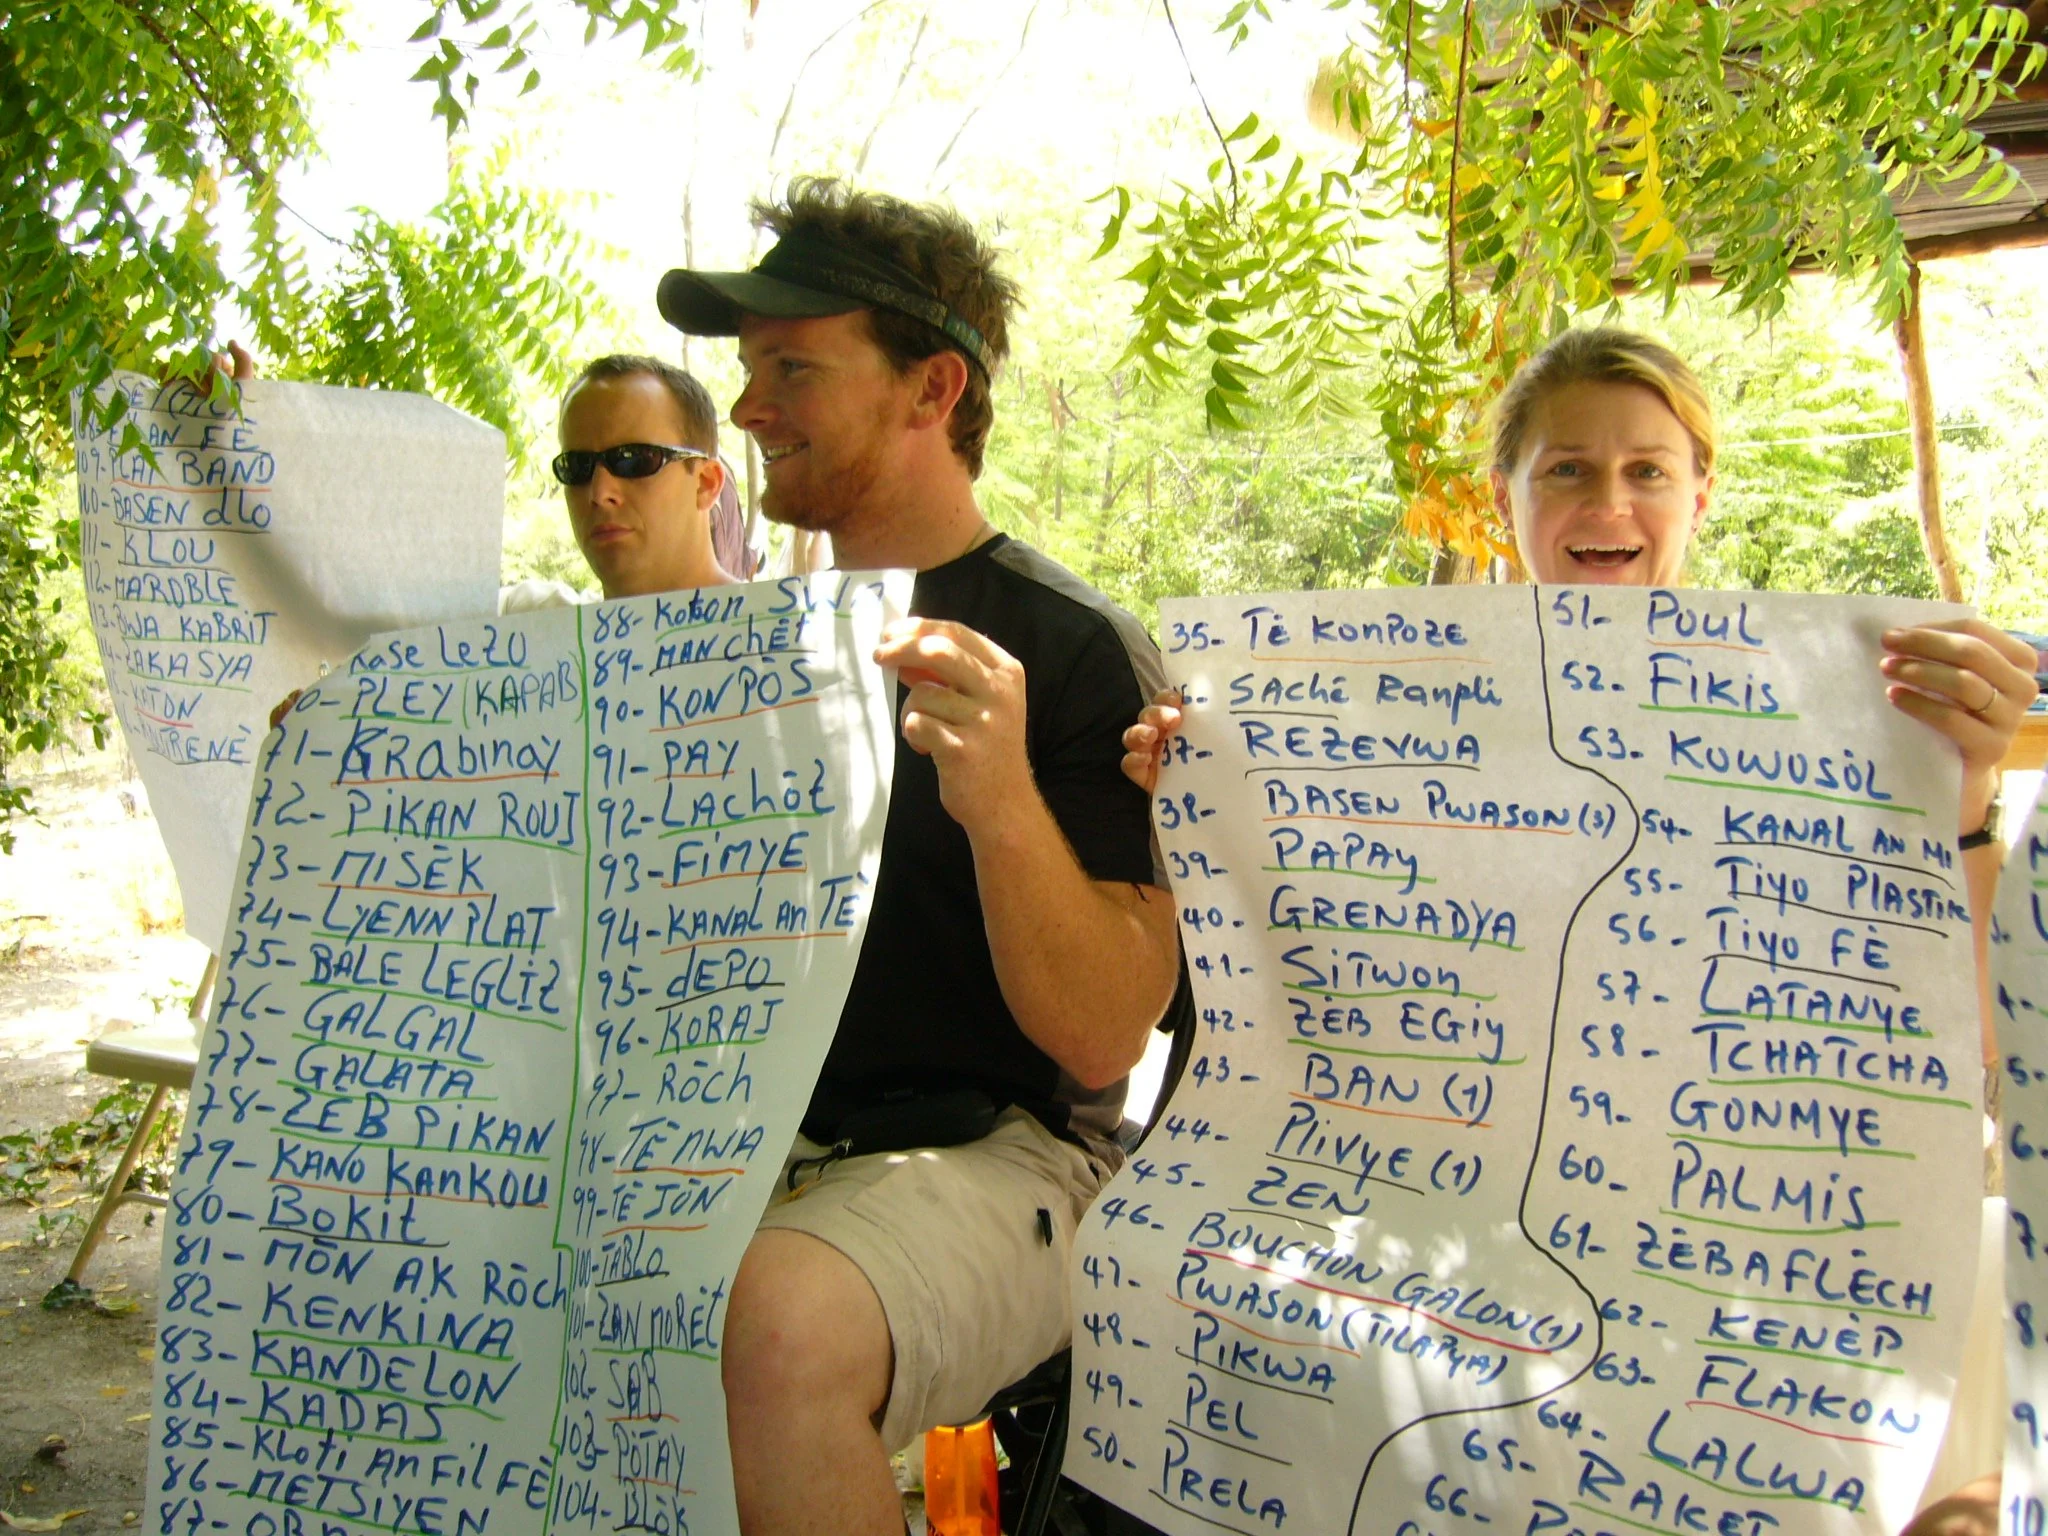 FÈ
109- PLAT BAND
BASEN dlo
111- KLOU
112- MAROBLE
BWA KABRIT
ZAKASYA
KOTON
kase LeZO
PLEY (KAPAB)
71- GRabinay
72- PiKAN ROUJ
73- MiSÈK
74- LYENN PLAT
75- BALE LEGLIZ
76- GALGAL
77- GALATA
78- ZÈB PiKAN
79- KANO KanKOU
80- Bokit
81- MÒN AK RÒch
82- KENKiNA
83- KANDELON
84- KADAS
85- Kloti An Fil FÈ
86- METSiYEN
87-
88- Koton
89- MANchÈt
90- KONPÒS
91- PAY
92- LAchÒZ
93- FiMYE
94- KANAL an TÈ
95- dEPO
96- KORAJ
97- RÒch
98- TÈ NWA
99- TÈ JÒN
100- TABLO
101- ZAN MORÈT
102- SAB
103- PÒTAY
104- BLÒK
35- TÈ KonPOZE
SAChÈ Ranpli
37- REZEVWA
38- BASEN PWASON (3)
39- PAPAY
40- GRENADYA
41- SiTWON
42- ZÈB EGiy
43- BAN (1)
44- PliVYE (1)
45- ZEN
46- BOUCHON GALON (1)
47- PWASON (TILAPYA)
48- PiKWA
49- PEL
50- PRELA
51- POUL
52- FiKiS
53- KOWOSÒL
54- KANAL AN Mi
55- Tiyo PLASTiK
56- Tiyo FÈ
57- LATANYE
58- TCHATCHA
59- GONMYE
60- PALMiS
61- ZÈBAFLÈCH
62- KENÈP
63- FLAKON
64- LALWA
65- RAKET
66-
4-
5-
6-
7-
8-
9-
10